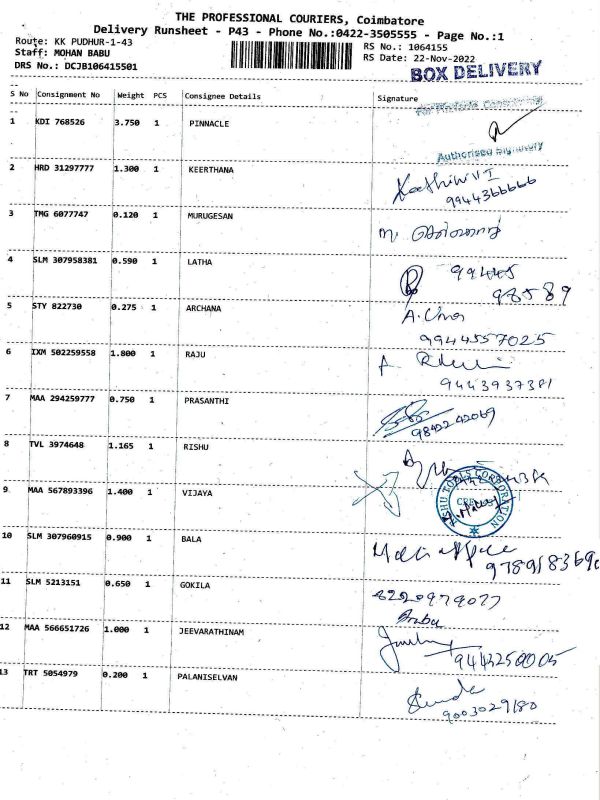 THE PROFESSIONAL COURIERS, Coimbatore
Delivery Runsheet - P43 - Phone No.:0422-3505555 - Page No.:1
Route: KK PUDHUR-1-43
RS No.: 1064155
Staff: MOHAN BABU
RS Date: 22-Nov-2022
DRS No.: DCJB106415501
BOX DELIVERY
S No Consignment No Weight PCS Consignee Details Signature
1 KDI 768526 3.750 1 PINNACLE
Authorised Signatory
2 HRD 31297777 1.300 1 KEERTHANA
9944366666
3 TMG 6077747 0.120 1 MURUGESAN
4 SLM 307958381 0.590 1 LATHA
99445
98589
5 STY 822730 0.275 1 ARCHANA
A. Uma
9944557025
6 IXM 502259558 1.800 1 RAJU
9443937381
7 MAA 294259777 0.750 1 PRASANTHI
9842242069
8 TVL 3974648 1.165 1 RISHU
RISHU TOOLS CORPORATION
9 MAA 567893396 1.400 1 VIJAYA
10 SLM 307960915 0.900 1 BALA
11 SLM 5213151 0.650 1 GOKILA
8220979077
12 MAA 566651726 1.000 1 JEEVARATHINAM
9443250005
13 TRT 5054979 0.200 1 PALANISELVAN
9003029180